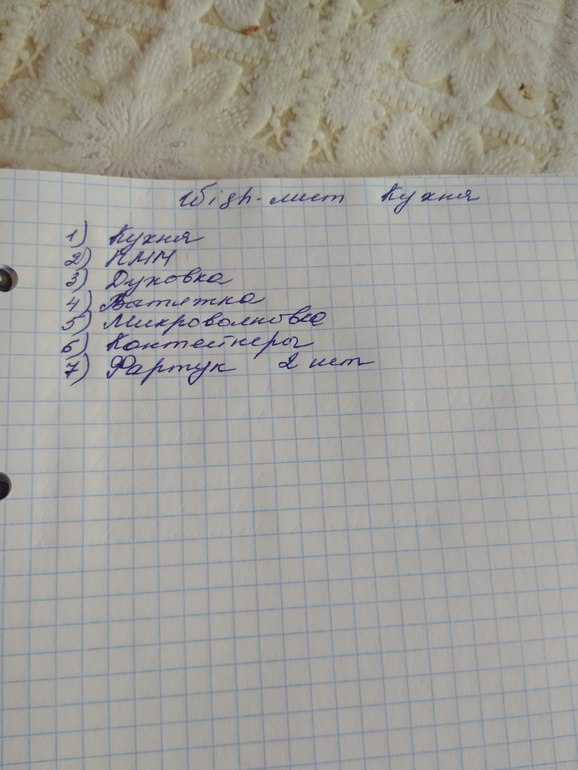 Wish-лист Кухня
1) Кухня
2) ПММ
3) Духовка
4) Вытяжка
5) Микроволновка
6) Контейнеры
7) Фартук 2 шт